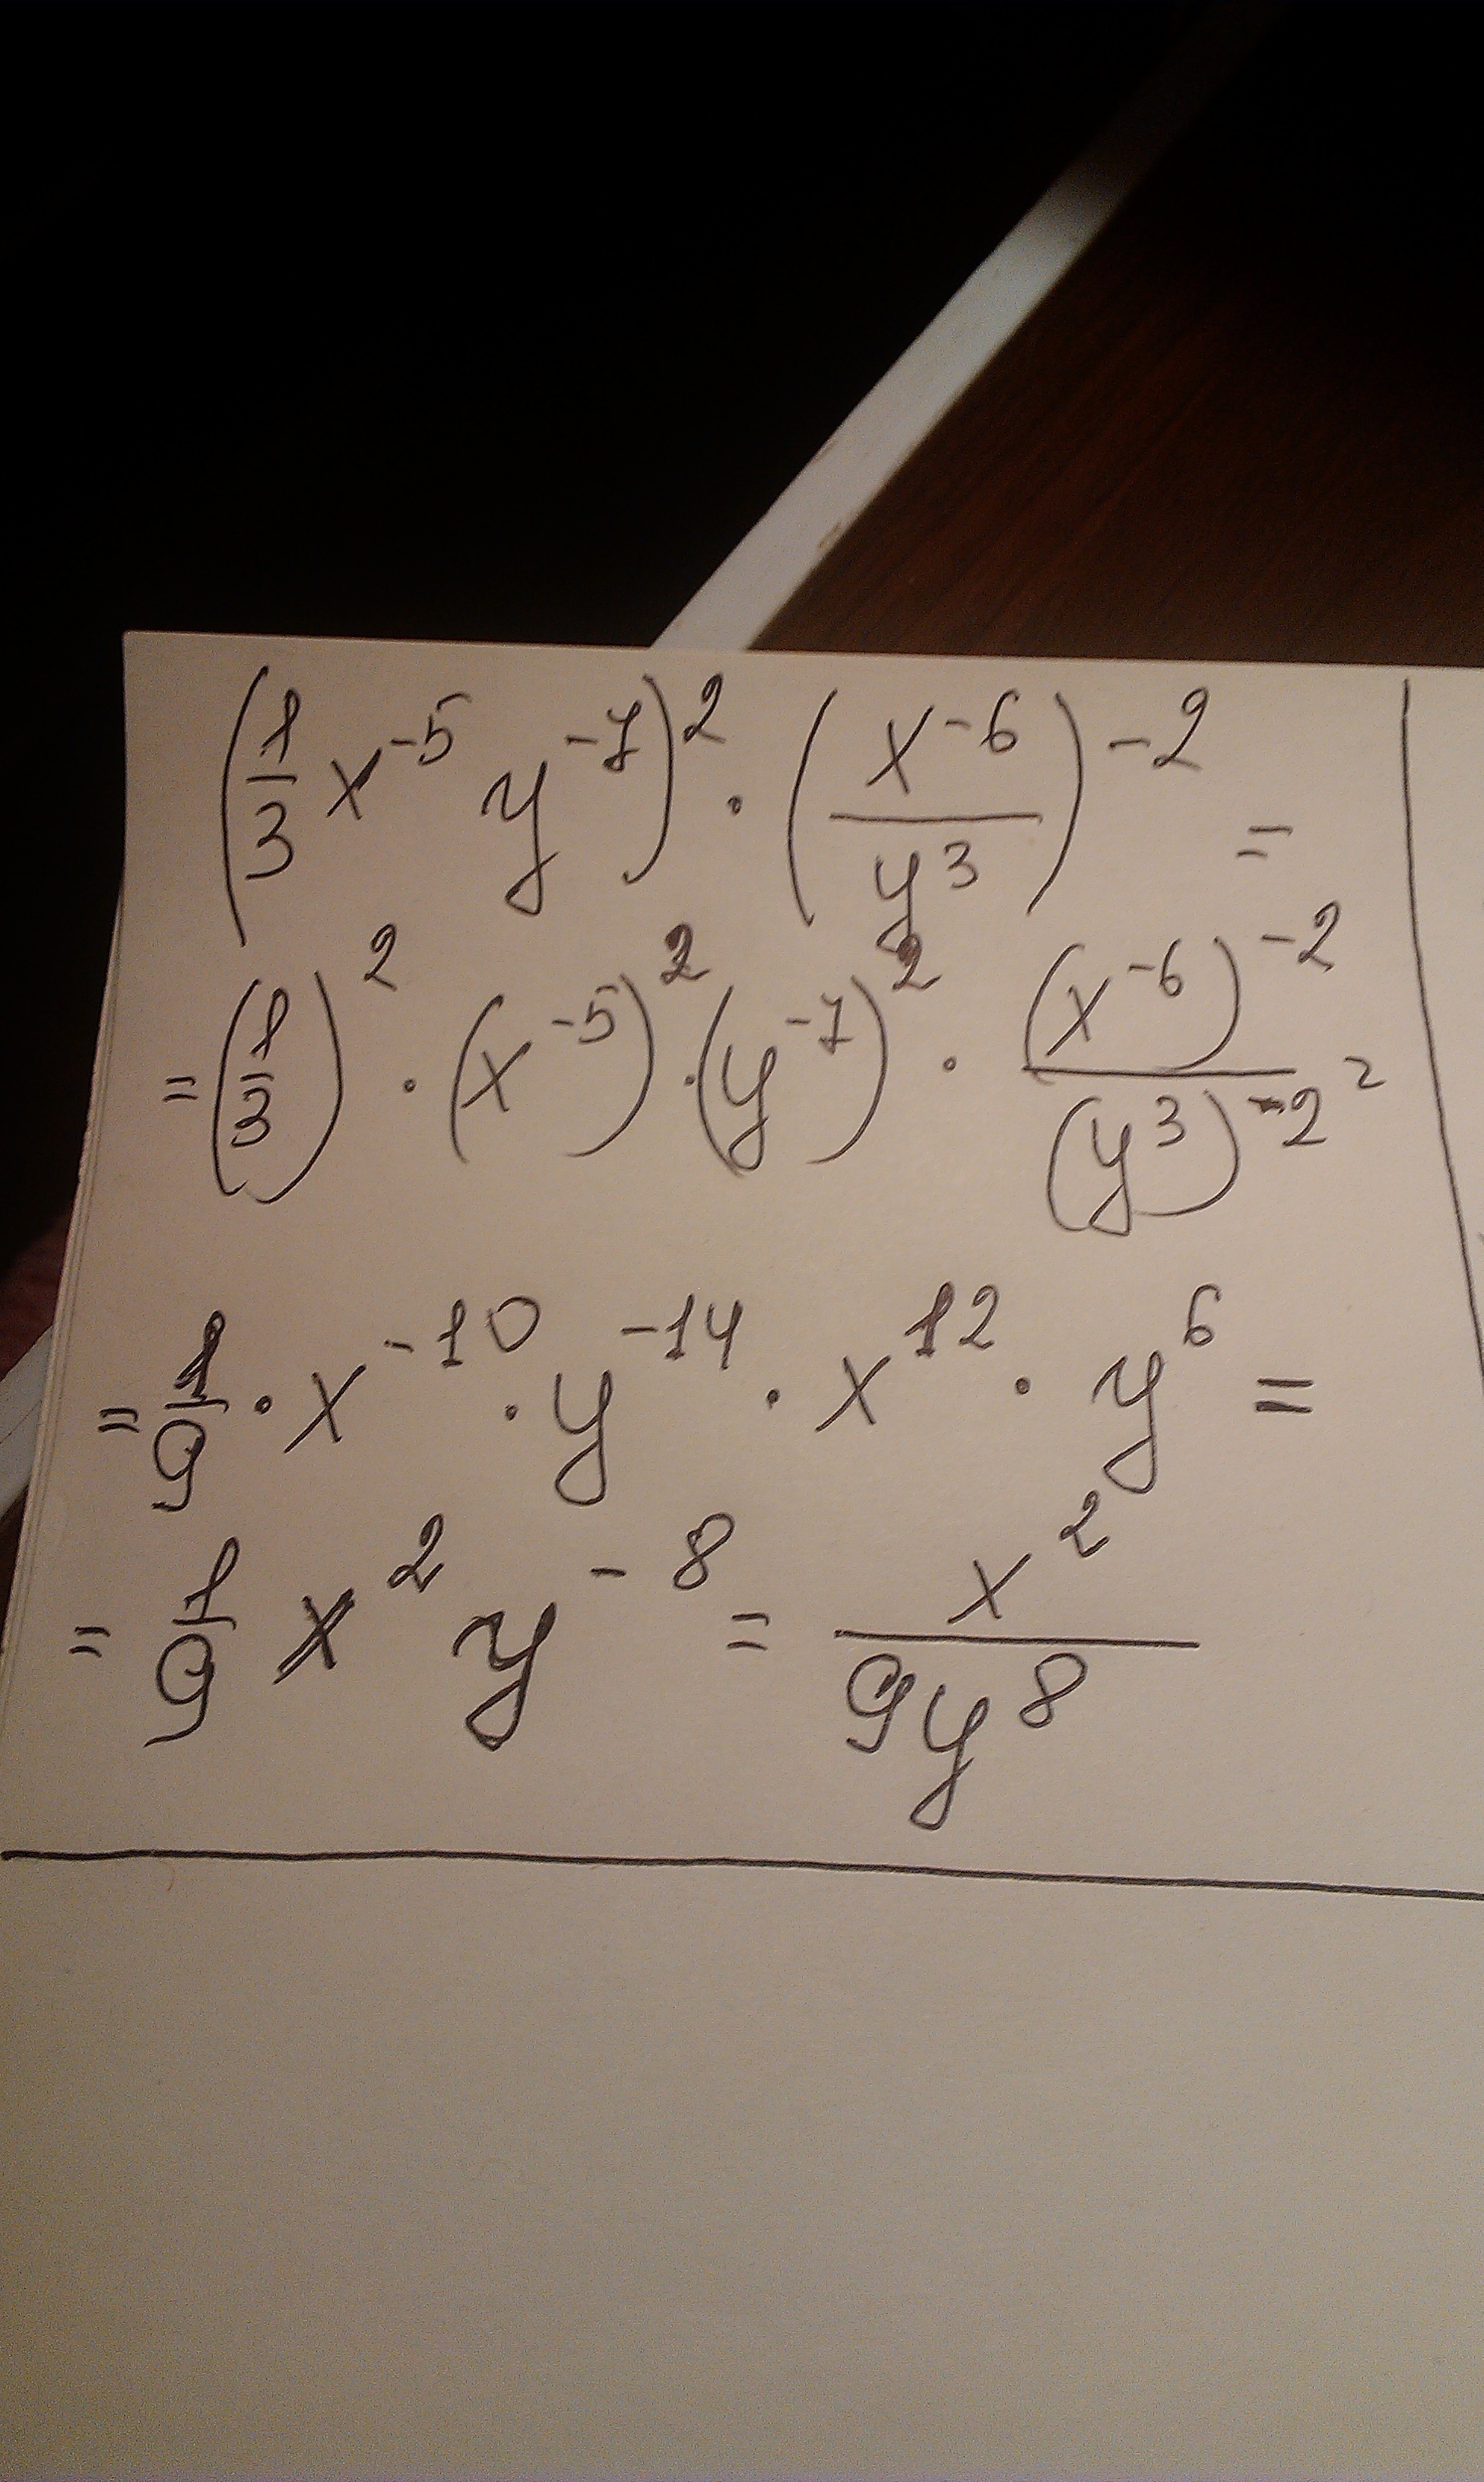 (1/3 x^-5 y^-7)^2 · (x^-6 / y^3)^-2 =
= (1/3)^2 · (x^-5)^2 · (y^-7)^2 · (x^-6)^-2 / (y^3)^-2 =
= 1/9 · x^-10 · y^-14 · x^12 · y^6 =
= 1/9 x^2 y^-8 = x^2 / 9y^8